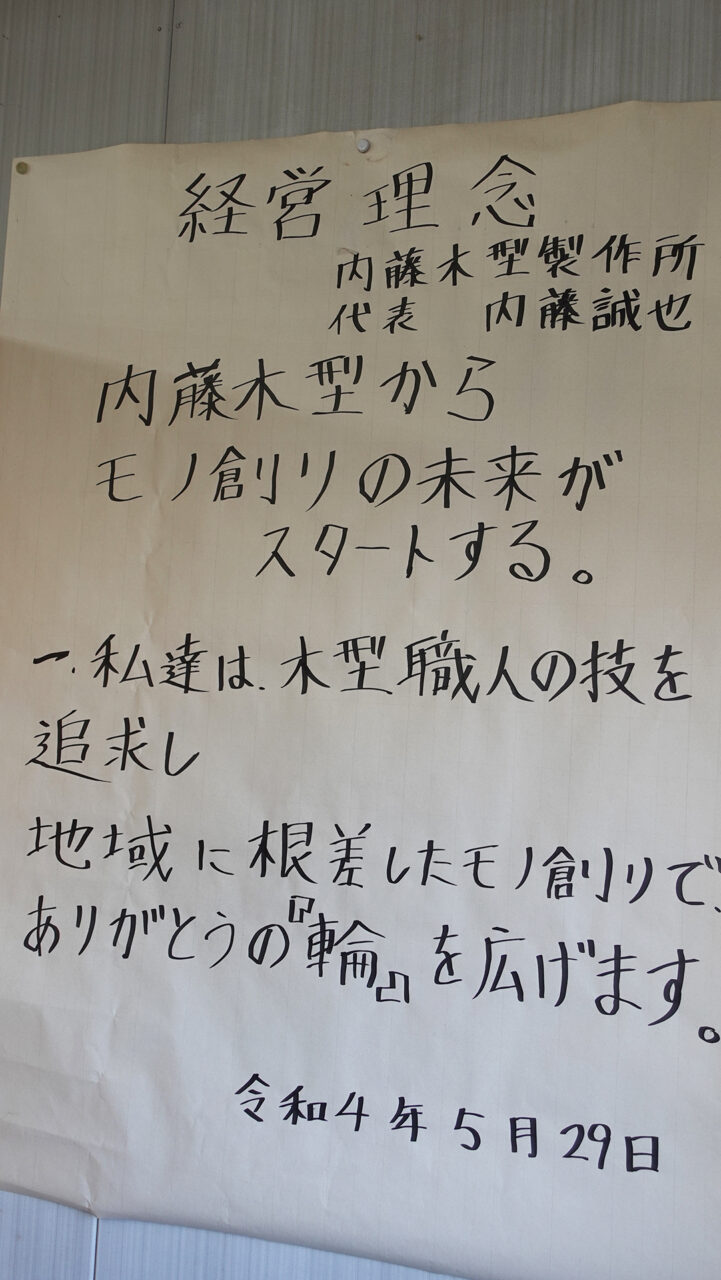 経営理念
内藤木型製作所
代表　内藤誠也
内藤木型から
モノ創りの未来が
スタートする。
一.私達は.木型職人の技を
追求し
地域に根差したモノ創りで、
ありがとうの『輪』を広げます。
令和4年5月29日